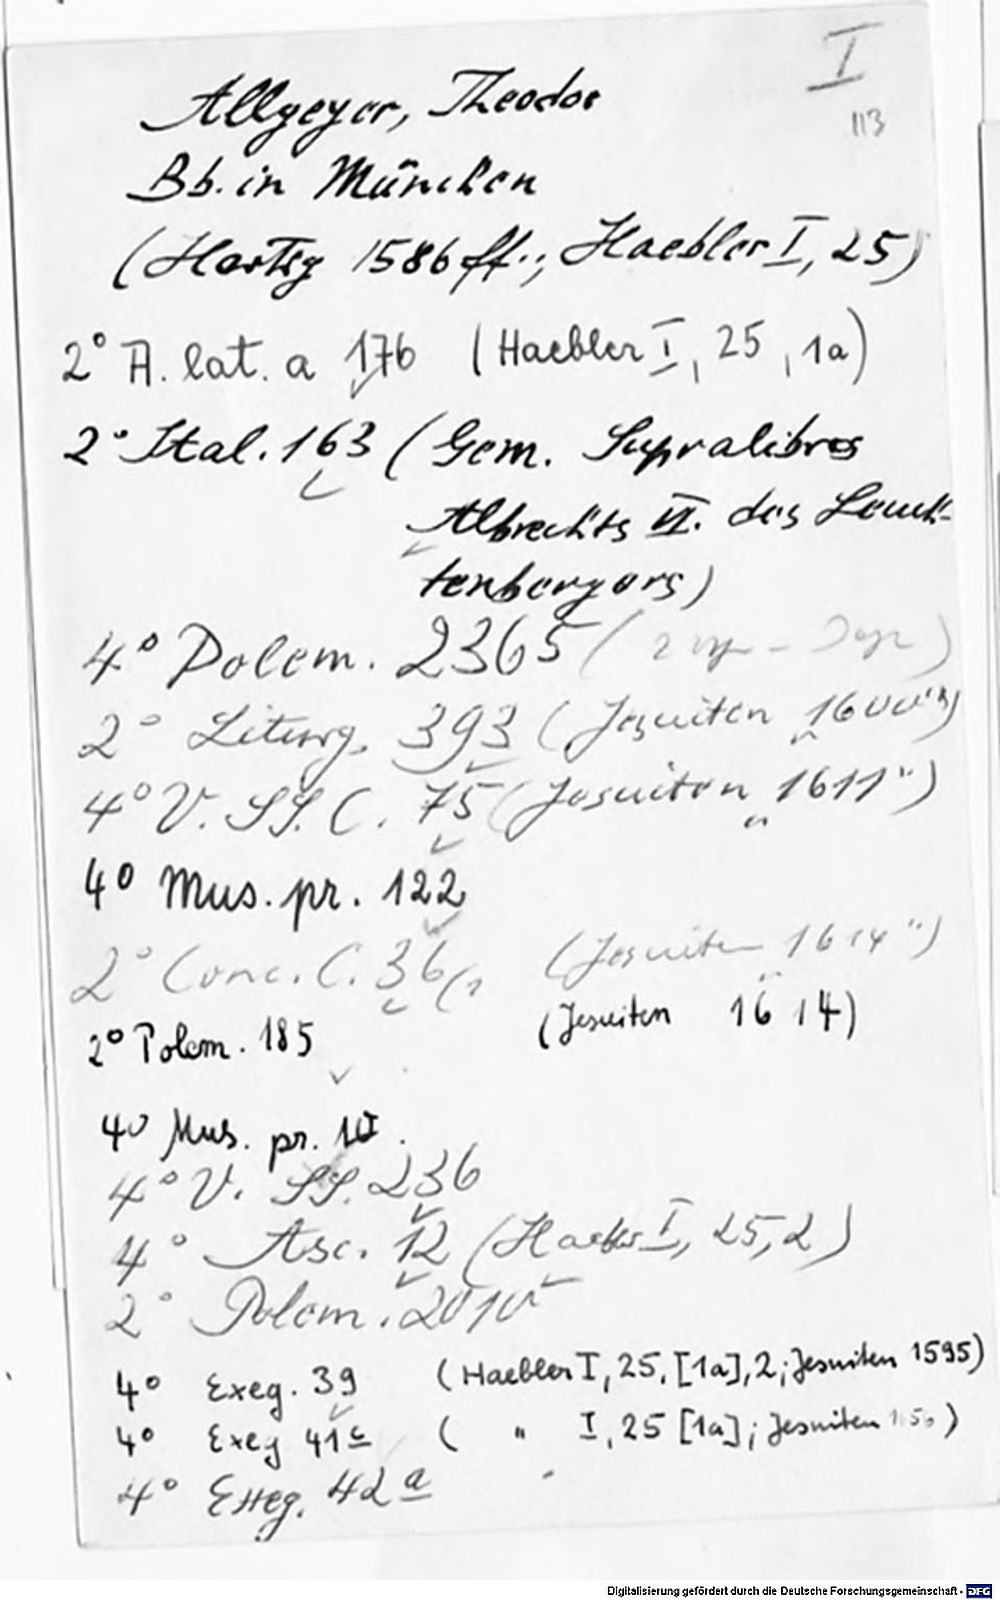 I
113
Allgeyer, Theodor
Bb. in München
(Hartig 1586 ff.; Haebler I, 25)
2° A. lat. a 176 (Haebler I, 25, 1a)
2° Ital. 163 (Gem. Supralibros
Albrechts VI. des Leuch-
tenbergers)
4° Polem. 2365
2° Liturg. 393 (Jesuiten „1600")
4° V. SS. C. 75 (Jesuiten „1611")
4° Mus. pr. 122
2° Conc. C. 36 (Jesuiten „1614")
2° Polem. 185 (Jesuiten 1614)
4° Mus. pr.
4° V. SS. 236
4° Asc. 12 (Haebler I, 25,2)
2° Polem.
4° Exeg. 39 (Haebler I, 25, [1a], 2; Jesuiten 1595)
4° Exeg 41c ( " I, 25 [1a]; Jesuiten )
4° Exeg. 42a
Digitalisierung gefördert durch die Deutsche Forschungsgemeinschaft - DFG